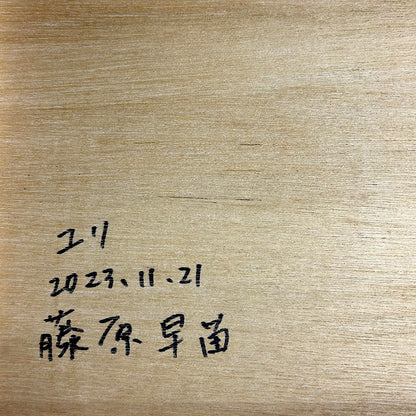 ユリ
2023.11.21
藤原早苗